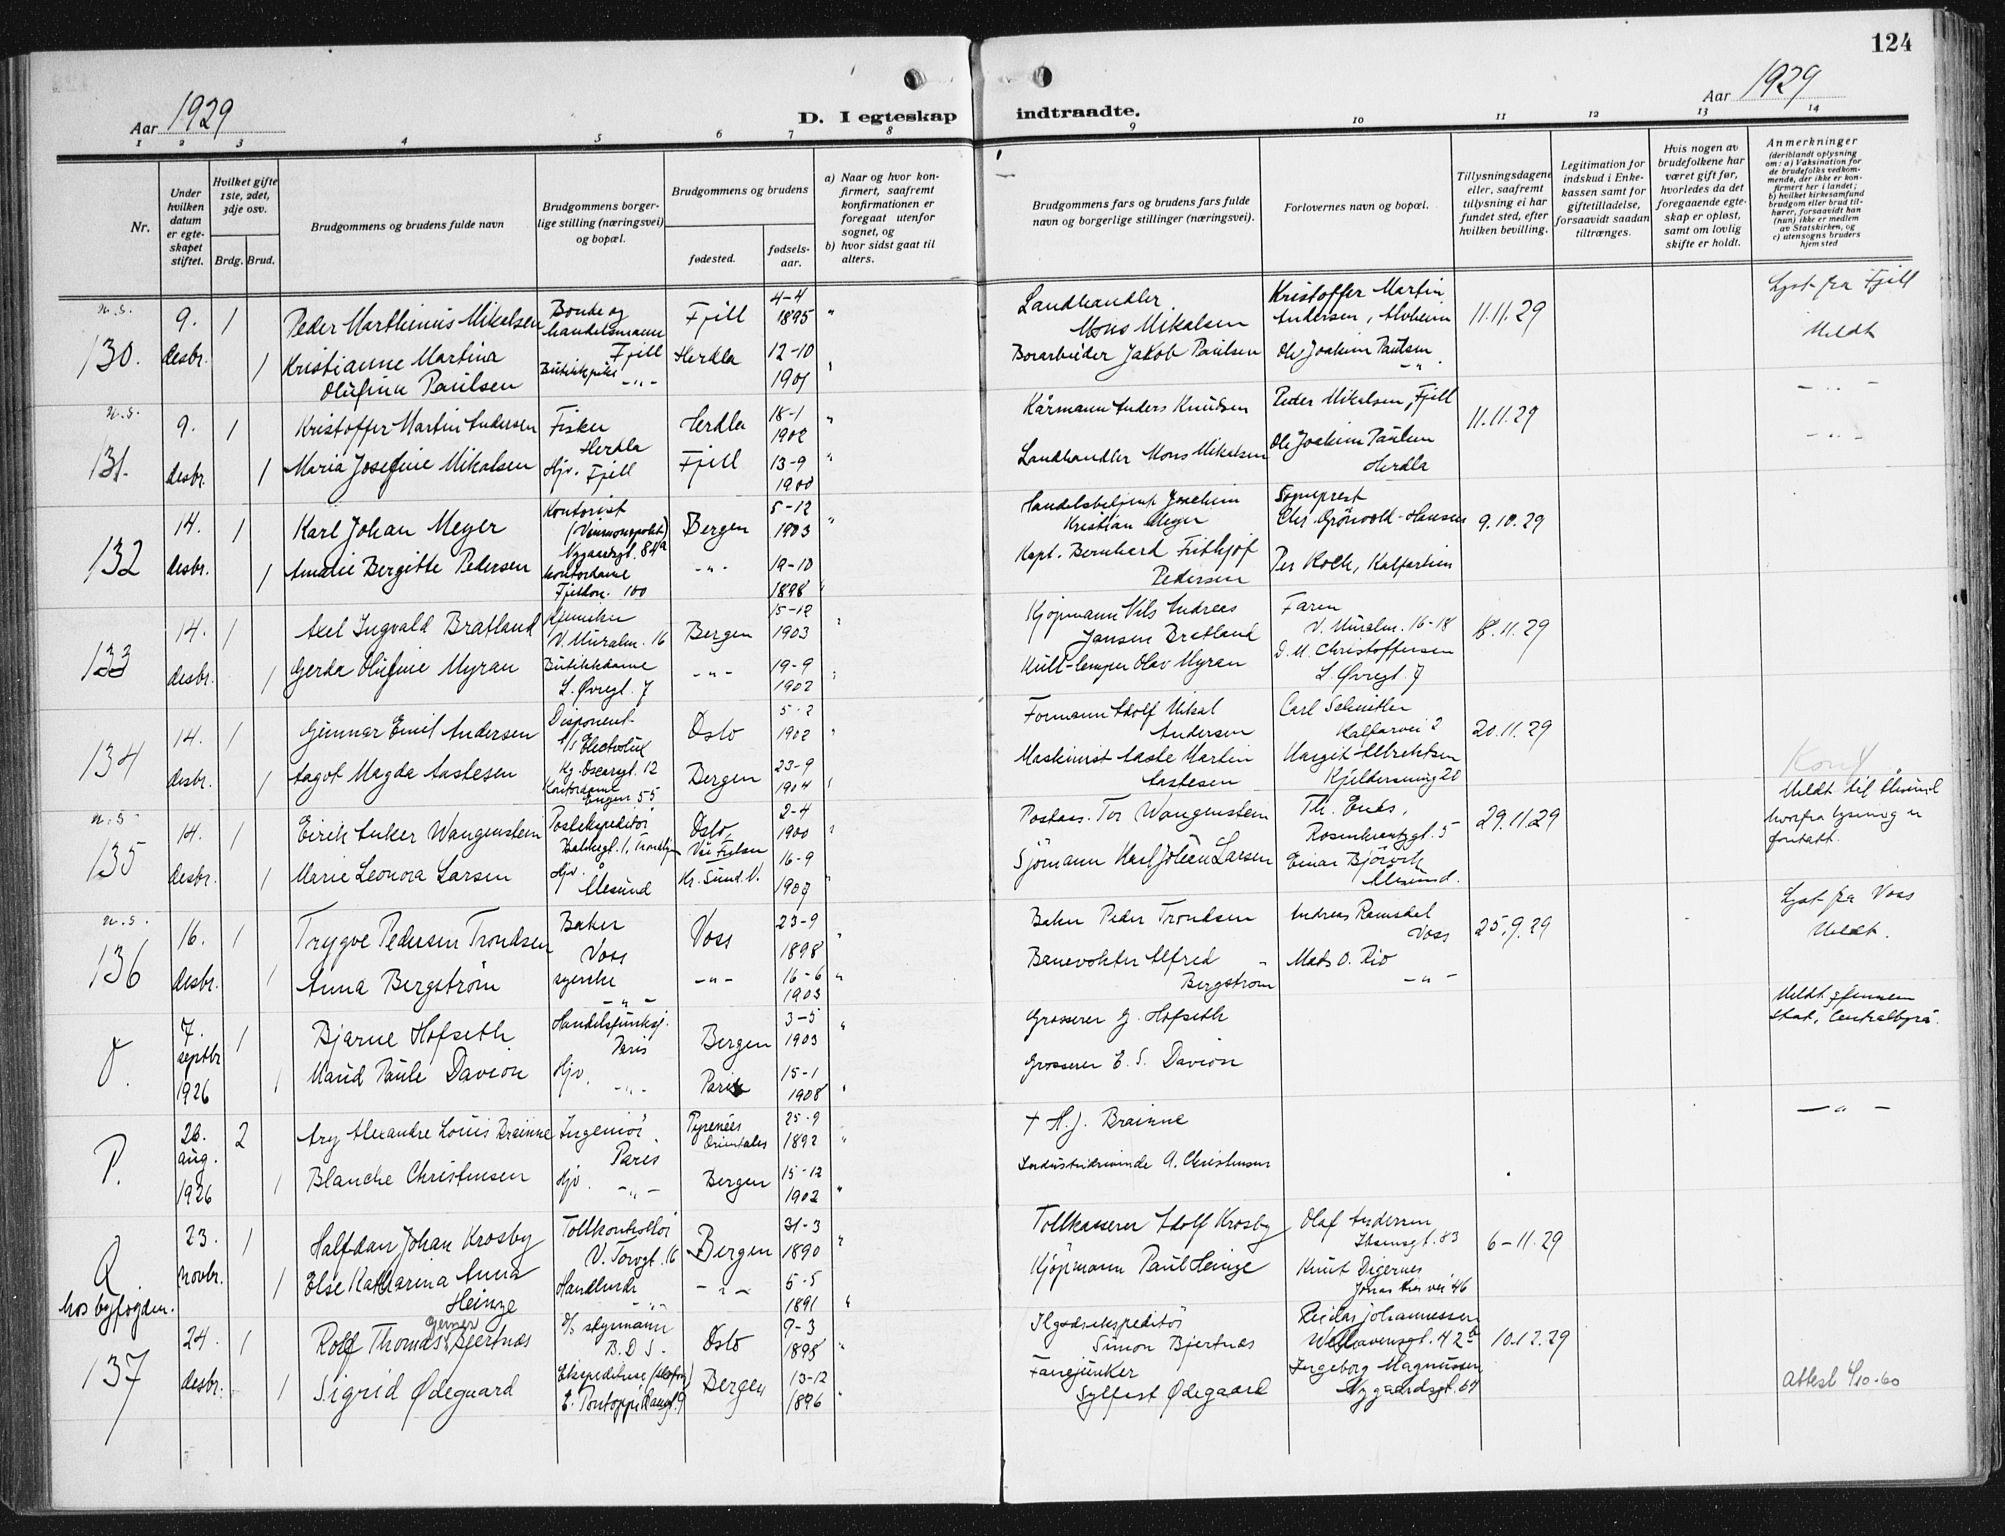 124
Aar 1929
D. I egteskap indtraadte.
Aar 1929
1 2 3 4 5 6 7 8 9 10 11 12 13 14
Nr.
Under hvilken datum er egteskapet stiftet.
Hvilket gifte 1ste, 2det, 3dje osv.
Brdg. Brud.
Brudgommens og brudens fulde navn
Brudgommens borgerlige stilling (næringsvei) og bopæl.
Brudgommens og brudens
fødested.
fødselsaar.
a) Naar og hvor konfirmert, saafremt konfirmationen er foregaat utenfor sognet, og
b) hvor sidst gaat til alters.
Brudgommens fars og brudens fars fulde navn og borgerlige stillinger (næringsvei).
Forlovernes navn og bopæl.
Tillysningsdagene eller, saafremt tillysning ei har fundet sted, efter hvilken bevilling.
Legitimation for indskud i Enkekassen samt for giftetilladelse, forsaavidt saadan tiltrænges.
Hvis nogen av brudefolkene har været gift før, hvorledes da det foregaaende egteskap er opløst, samt om lovlig skifte er holdt.
Anmerkninger
(deriblandt oplysning om: a) Vaksination for de brudefolks vedkommende, der ikke er konfirmert her i landet; b) hvilket kirkesamfund brudgom eller brud tilhører, forsaavidt han (hun) ikke er medlem av Statskirken, og c) utensogns bruders hjemsted
n.s. 130. 9. desbr. 1 Peder Marthinius Mikalsen Bonde og handelsmann Fjell Fjell 4-4 1895 " Landhandler Mons Mikalsen Kristoffer Martin Andersen, Alvheim 11.11.29 Lyst fra Fjell
1 Kristianne Martina Olufina Paulsen Butikkpike -"- Herdla 12-10 1901 " Jakob Paulsen Ole Joakim Paulsen -"- Meldt
n.s. 131. 9. desbr. 1 Kristoffer Martin Andersen Fisker Herdla Herdla 18-1 1902 " Kårmann Anders Knudsen Peder Mikalsen, Fjell 11.11.29 -"-
1 Maria Josefine Mikalsen Hjv. Fjell Fjell 13-9 1900 " Landhandler Mons Mikalsen Ole Joakim Paulsen Herdla -"-
132 14. desbr. 1 Karl Johan Meyer Kontorist (Vinmonopolet) Nygaardsgt. 84a Bergen 5-12 1903 " Joachim Kristian Meyer Sogneprest Chr. Grönvold-Hansen 9.10.29
1 Amalie Bergitte Pedersen Kontordame 100 -"- 19-10 1898 " Kapt. Bernhard Frithjof Pedersen Per Kolk, Kalfarlien
133 14. desbr. 1 Axel Ingvald Bratland V. Muralm. 16 Bergen 15-12 1903 " Kjøpmann Nils Andreas Jansen Bratland Faren V. Muralm. 16-18 18.11.29
1 Gerda Olufine Myran Butikkdame L. Øvregt. 7 -"- 19-9 1902 " Kull-lemper Olav Myran D. M. Christoffersen L. Øvregt. 7
134 14. desbr. 1 Gunnar Emil Andersen Disponent A/S Electrolux Kg. Oscarsgt. 12 Oslo 5-2 1902 " Formann Adolf Mikal Andersen Carl Schnitler Kalfarvei 2 20.11.29
1 Aagot Magda Aastesen Kontordame Engen 55 Bergen 23-9 1904 " Maskinist Aaste Martin Aastesen Margit Albrektsen 20
n.s. 135 14. desbr. 1 Eirik Anker Wangenstein Postekspeditör Oslo, 2-4 1900 " Postass. Tor Wangenstein Th. Enes, Rosenkrantzgt. 5 29.11.29 Meldt til Ålesund hvorfra lysning er foretatt.
1 Marie Leonora Larsen Hjv. Ålesund Kr. Sund. N. 16-9 1907 " Sjömann Karl Johan Larsen Einar Björvik Ålesund.
n.s. 136 16. desbr. 1 Trygve Pedersen Trondsen Baker Voss Voss 23-9 1898 " Baker Peder Trondsen Andreas Ramsdal Voss 25.9.29 Lyst fra Voss Meldt.
1 Anna Bergström syerske -"- -"- 16-6 1903 " Banevokter Alfred Bergström Mads O. Rio -"-
O. 7. septbr 1926 1 Bjarne Hofseth Paris Bergen 3-5 1903 " Grosserer J. Hofseth Meldt gjennem Stat. Centralbyrå.
1 Maud Paule Davion Hjv. -"- Paris 15-1 1908 " Grosserer E. S. Davion
P. 26. aug. 1926 2 Ary Alexandre Louis Brainne Ingeniör Paris Pyrenées Orientales 25-9 1892 " + H. J. Brainne -"-
1 Blanche Christensen Hjv. -"- Bergen 15-12 1902 " A. Christensen
Q hos byfogden. 23. novbr. 1 Halfdan Johan Krosby Tollkontrollör V. Torvgt. 16 Bergen 31-3 1890 " Tollkasserer Adolf Krosby Olaf Andersen Ibsensgt. 83 6-11.29
1 Else Katharina Anna Heinze -"- -"- 5-5 1891 " Kjöpmann Paul Heinze Knut Digernes Jonas Lies vei 46
137 24. desbr. 1 Rolf Thomas Gerner Bjertnæs styrmann B.D.S. Oslo 9-3 1895 " Ilgodsekspeditör Simon Bjertnæs Reidar Johannessen Welhavensgt. 42b 10.12.29
1 Sigrid Ødegaard E. Pontoppidansgt. 9 Bergen 13-12 1896 " Fanejunker Sylfest Ødegaard Ingeborg Magnussen Nygaardsgt. 64 attest 4/10-60